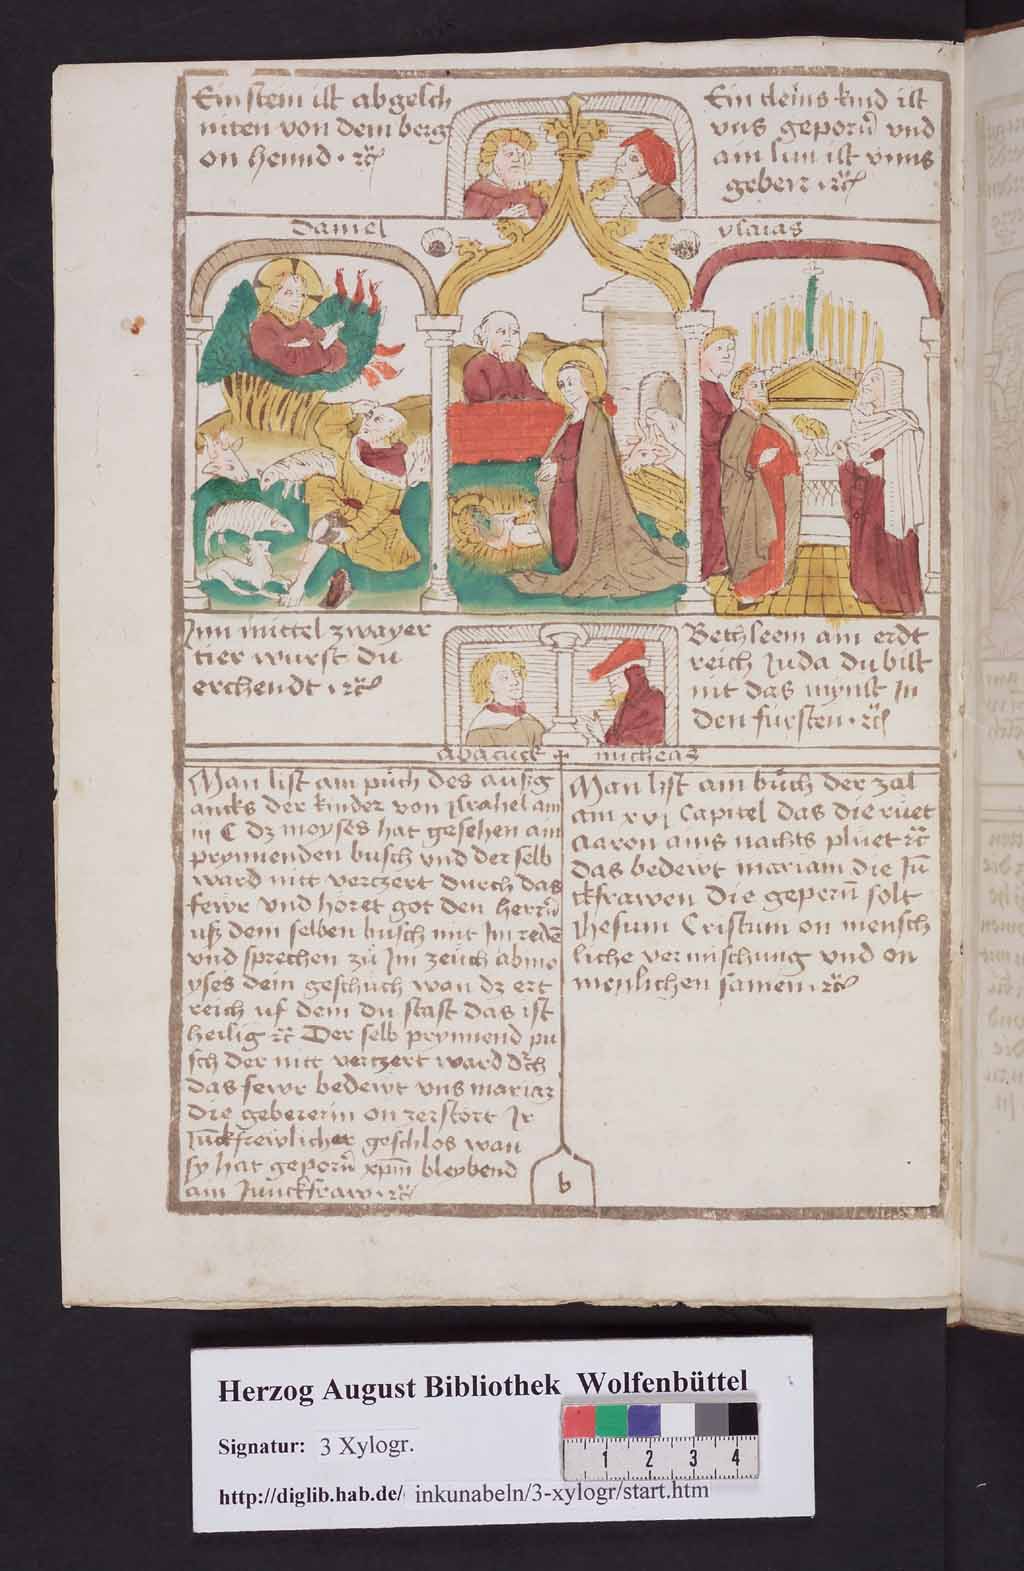 Ein stein ist abgesch
niten von dem berg
on hennd · ꝛc̃
Ein cleins kind ist
vns geporñ vnd
ain sun ist vnns
geben ꝛc̃
daniel
ysaias
Inn mittel zwayer
tier wurst du
erchendt · ꝛc̃
Bethleem am erdt
reich Juda du bist
nit das mynst In
den fürsten · ꝛc̃
abacuck + micheas
Man list am půch des aufzg
ancks der kinder von Israhel am
iij C dz moyses hat gesehen ain
prynnenden busch vnd der selb
ward nitt verczert durch das
fewr vnd höret got den herrñ
uß dem selben busch mit Im reden̄
vnd sprechen zů Im zeüch ab mo
yses dein geschüch wan dz ert
reich uf dem du stast das ist
heilig ꝛc̃ Der selb prynnend pu
sch der nitt verczert ward dȓch
das fewr bedewt vns mariaz
die gebererin on zerstört Ir
Jūckfrewlicher geschlos wan
sy hat geporñ xp̄m bleybend
ain Junckfraw · ꝛc̃
Man list am bůch der zal
am xvij Capitel das die růet
aaron ains nachts plůet ꝛc̃
das bedewt mariam die Jū
ckfrawen die geperñ solt
Jhesum Cristum on mensch
liche vermischung vnd on
menlichen samen · ꝛc̃
b
Herzog August Bibliothek Wolfenbüttel
Signatur: 3 Xylogr.
1 2 3 4
http://diglib.hab.de/ inkunabeln/3-xylogr/start.htm